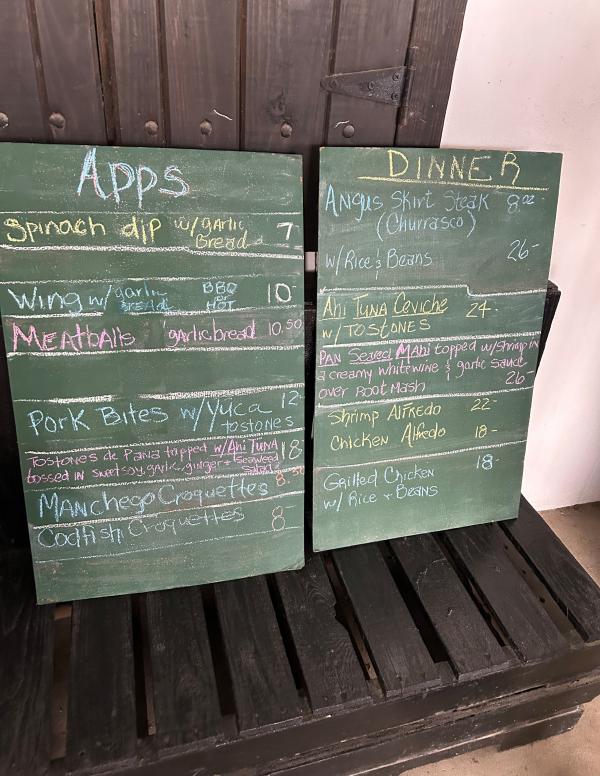 Apps
Spinach dip w/garlic Bread 7
Wing w/ garlic bread BBQ or HOT 10-
Meatballs garlic bread 10.50
Pork Bites w/Yuca tostones 12-
Tostones de Pana topped w/Ahi Tuna 18
tossed in sweet soy, garlic, ginger + Seaweed Salad
Manchego Croquettes 8.50
Codfish Croquettes 8-
DINNER
Angus Skirt Steak 8oz
(Churrasco)
w/Rice & Beans 26-
Ahi Tuna Ceviche 24-
w/TOSTONES
Pan Seared Mahi topped w/shrimp in
a creamy white wine & garlic sauce
over Root Mash 26
Shrimp Alfredo 22-
Chicken Alfredo 18-
Grilled Chicken 18-
w/ Rice + Beans